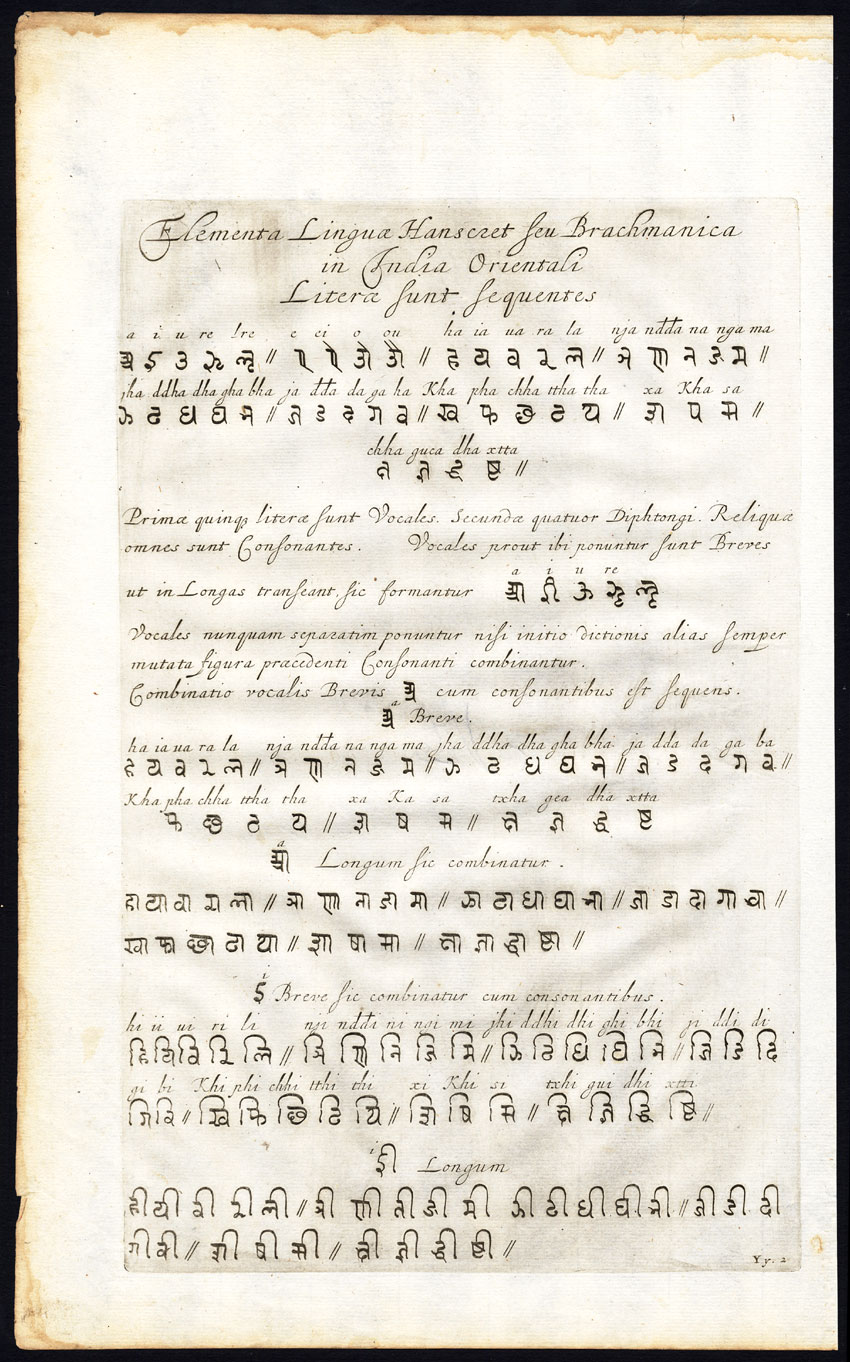 Elementa Linguæ Hanscret seu Brachmanica
in India Orientali
Literæ sunt sequentes
a i u re lre e ei o ou ha ia ua ra la nja ndda na nga ma
अ इ उ ऋ ऌ // ए ऐ ओ औ // ह य व र ल // ञ ण न ङ म //
jha ddha dha gha bha ja dda da ga ba Kha pha chha ttha tha xa Kha sa
झ ढ ध घ भ // ज ड द ग ब // ख फ छ ठ थ // श ष स //
chha guca dha xtta
क्ष ज्ञ द्ध ष्ट //
Primæ quinq; literæ sunt Vocales. Secundæ quatuor Diphtongi. Reliquæ
omnes sunt Consonantes. Vocales prout ibi ponuntur sunt Breves
a i u re
ut in Longas transeant, sic formantur आ ई ऊ ॠ ॡ
Vocales nunquam separatim ponuntur nisi initio dictionis alias semper
mutata figura præcedenti Consonanti combinantur.
Combinatio vocalis Brevis अ cum consonantibus est sequens.
a
अ Breve.
ha ia ua ra la nja ndda na nga ma jha ddha dha gha bha ja dda da ga ba
ह य व र ल // ञ ण न ङ म // झ ढ ध घ भ // ज ड द ग ब //
Kha pha chha ttha tha xa Ka sa txha gea dha xtta
फ छ ठ थ // श ष स // क्ष ज्ञ द्ध ष्ट
a
आ Longum sic combinatur.
हा या वा रा ला // ञा णा ना ङा मा // झा ढा धा घा भा // जा डा दा गा बा //
खा फा छा ठा था // शा षा सा // क्षा ज्ञा द्धा ष्टा //
i
इ Breve sic combinatur cum consonantibus.
hi ii ui ri li nji nddi ni ngi mi jhi ddhi dhi ghi bhi ji ddi di
हि यि वि रि लि // ञि णि नि ङि मि // झि ढि धि घि भि // जि डि दि
gi bi Khi phi chhi tthi thi xi Khi si txhi gui dhi xtti
गि बि // खि फि छि ठि थि // शि षि सि // क्षि ज्ञि द्धि ष्टि //
i
ई Longum
ही यी वी री ली // ञी णी नी ङी मी झी ढी धी घी भी // जी डी दी
गी बी // शी षी सी // क्षी ज्ञी द्धी ष्टी //
Yy. 2